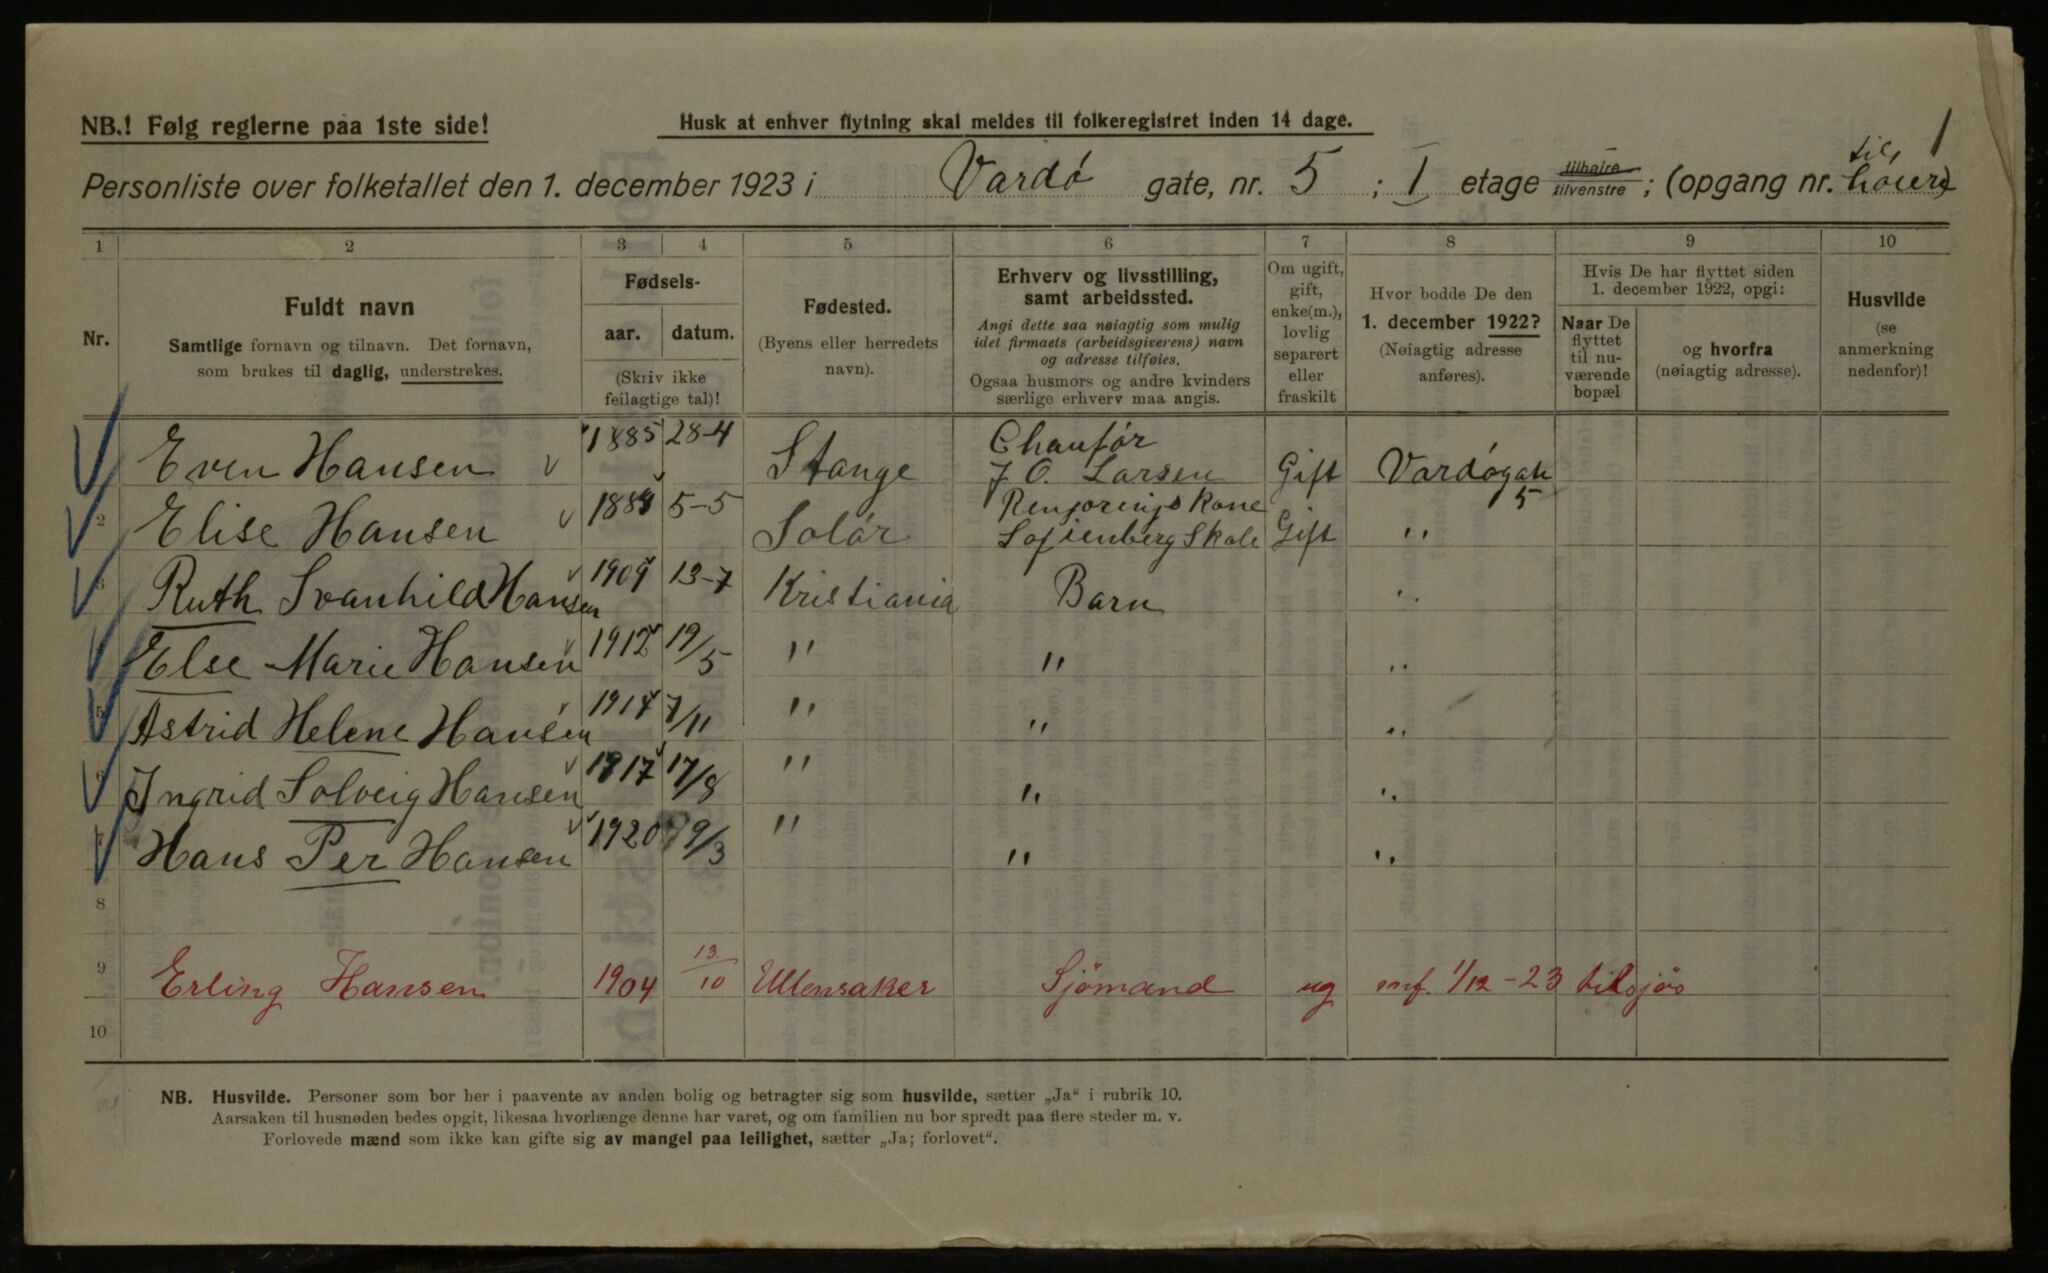 NB.! Følg reglerne paa 1ste side!
Husk at enhver flytning skal meldes til folkeregistret inden 14 dage.
1
Personliste over folketallet den 1. december 1923 i Vardø gate, nr. 5 ; I etage tilhøire tilvenstre ; (opgang nr. til høire)
1 2 3 4 5 6 7 8 9 10
Nr.
Fuldt navn
Samtlige fornavn og tilnavn. Det fornavn,
som brukes til daglig, understrekes.
Fødsels-
aar. datum.
(Skriv ikke
feilagtige tal)!
Fødested.
(Byens eller herredets
navn).
Erhverv og livsstilling,
samt arbeidssted.
Angi dette saa nøiagtig som mulig
idet firmaets (arbeidsgiverens) navn
og adresse tilføies.
Ogsaa husmors og andre kvinders
særlige erhverv maa angis.
Om ugift,
gift,
enke(m.),
lovlig
separert
eller
fraskilt
Hvor bodde De den
1. december 1922?
(Nøiagtig adresse
anføres).
Hvis De har flyttet siden
1. december 1922, opgi:
Naar De
flyttet
til nu-
værende
bopæl
og hvorfra
(nøiagtig adresse).
Husvilde
(se
anmerkning
nedenfor)!
Even Hansen 1885 28-4 Stange Chauför J. O. Larsen Gift Vardøgate 5
2 Elise Hansen 5-5 Solør Rengjørings Kone Sofienberg Skole Gift "
3 Ruth Svanhild Hansen 1909 13-7 Kristiania Barn "
Else Marie Hansen 1912 19/5 " " "
5 Astrid Helene Hansen 1914 7/11 " " "
6 Ingrid Solveig Hansen 1917 17/8 " " "
7 Hans Per Hansen 1920 9/3 " " "
8
9 Erling Hansen 1904 13/10 Ullensaker Sjömand ug 1/12-23 tilsjøs
10
NB. Husvilde. Personer som bor her i paavente av anden bolig og betragter sig som husvilde, sætter „Ja“ i rubrik 10.
Aarsaken til husnøden bedes opgit, likesaa hvorlænge denne har varet, og om familien nu bor spredt paa flere steder m. v.
Forlovede mænd som ikke kan gifte sig av mangel paa leilighet, sætter „Ja; forlovet“.